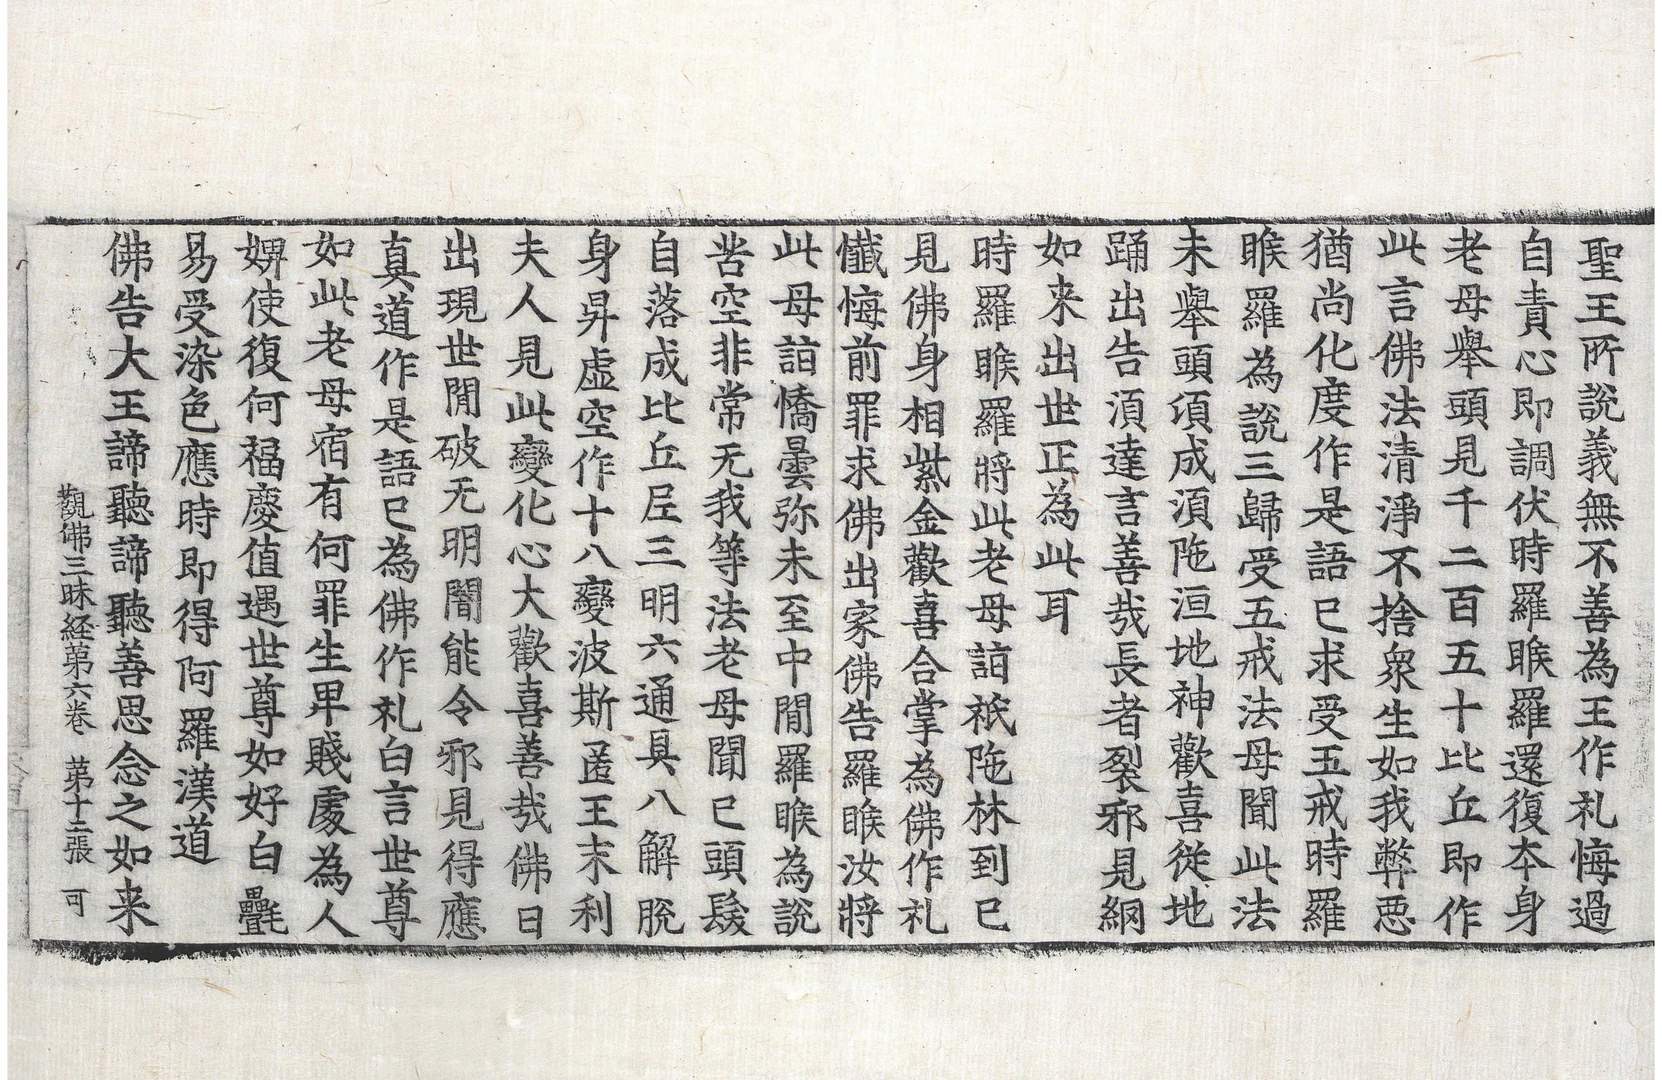 聖王所說義無不善為王作礼悔過
自責心即調伏時羅睺羅還復夲身
老母舉頭見千二百五十比丘即作
此言佛法清淨不捨衆生如我弊惡
猶尚化度作是語已求受五戒時羅
睺羅為說三歸受五戒法母聞此法
未舉頭頃成湏陁洹地神歡喜從地
踊出告湏達言善哉長者裂邪見網
如来出世正為此耳
時羅睺羅將此老母詣祇陁林到已
見佛身相紫金歡喜合掌為佛作礼
懺悔前罪求佛出家佛告羅睺汝將
此母詣憍曇弥未至中閒羅睺為說
苦空非常无我等法老母聞已頭髮
自落成比丘尼三明六通具八解脫
身昇虛空作十八變波斯匿王末利
夫人見此變化心大歡喜善哉佛日
出現世閒破无明闇能令邪見得應
真道作是語已為佛作礼白言世尊
如此老母宿有何罪生卑賤處為人
婢使復何福慶值遇世尊如好白㲲
易受染色應時即得阿羅漢道
佛告大王諦聽諦聽善思念之如来
觀佛三昧経苐六卷 苐十二張 可